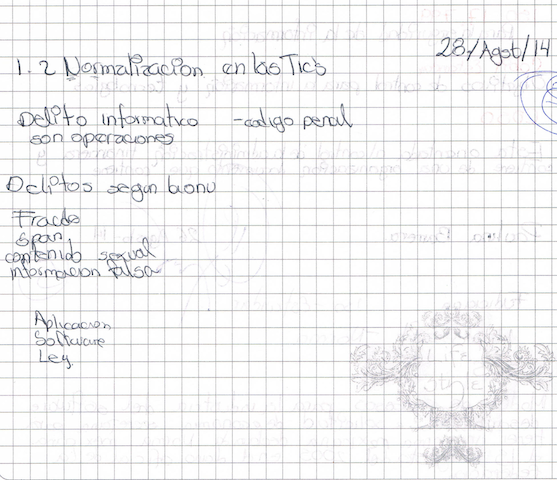 28/Agost/14
1.2 Normalización en las Tic's
Delito informatico - codigo penal
son operaciones
Delitos segun la onu
Fraude
span
contenido sexual
informacion falsa
Aplicacion
Software
Ley.